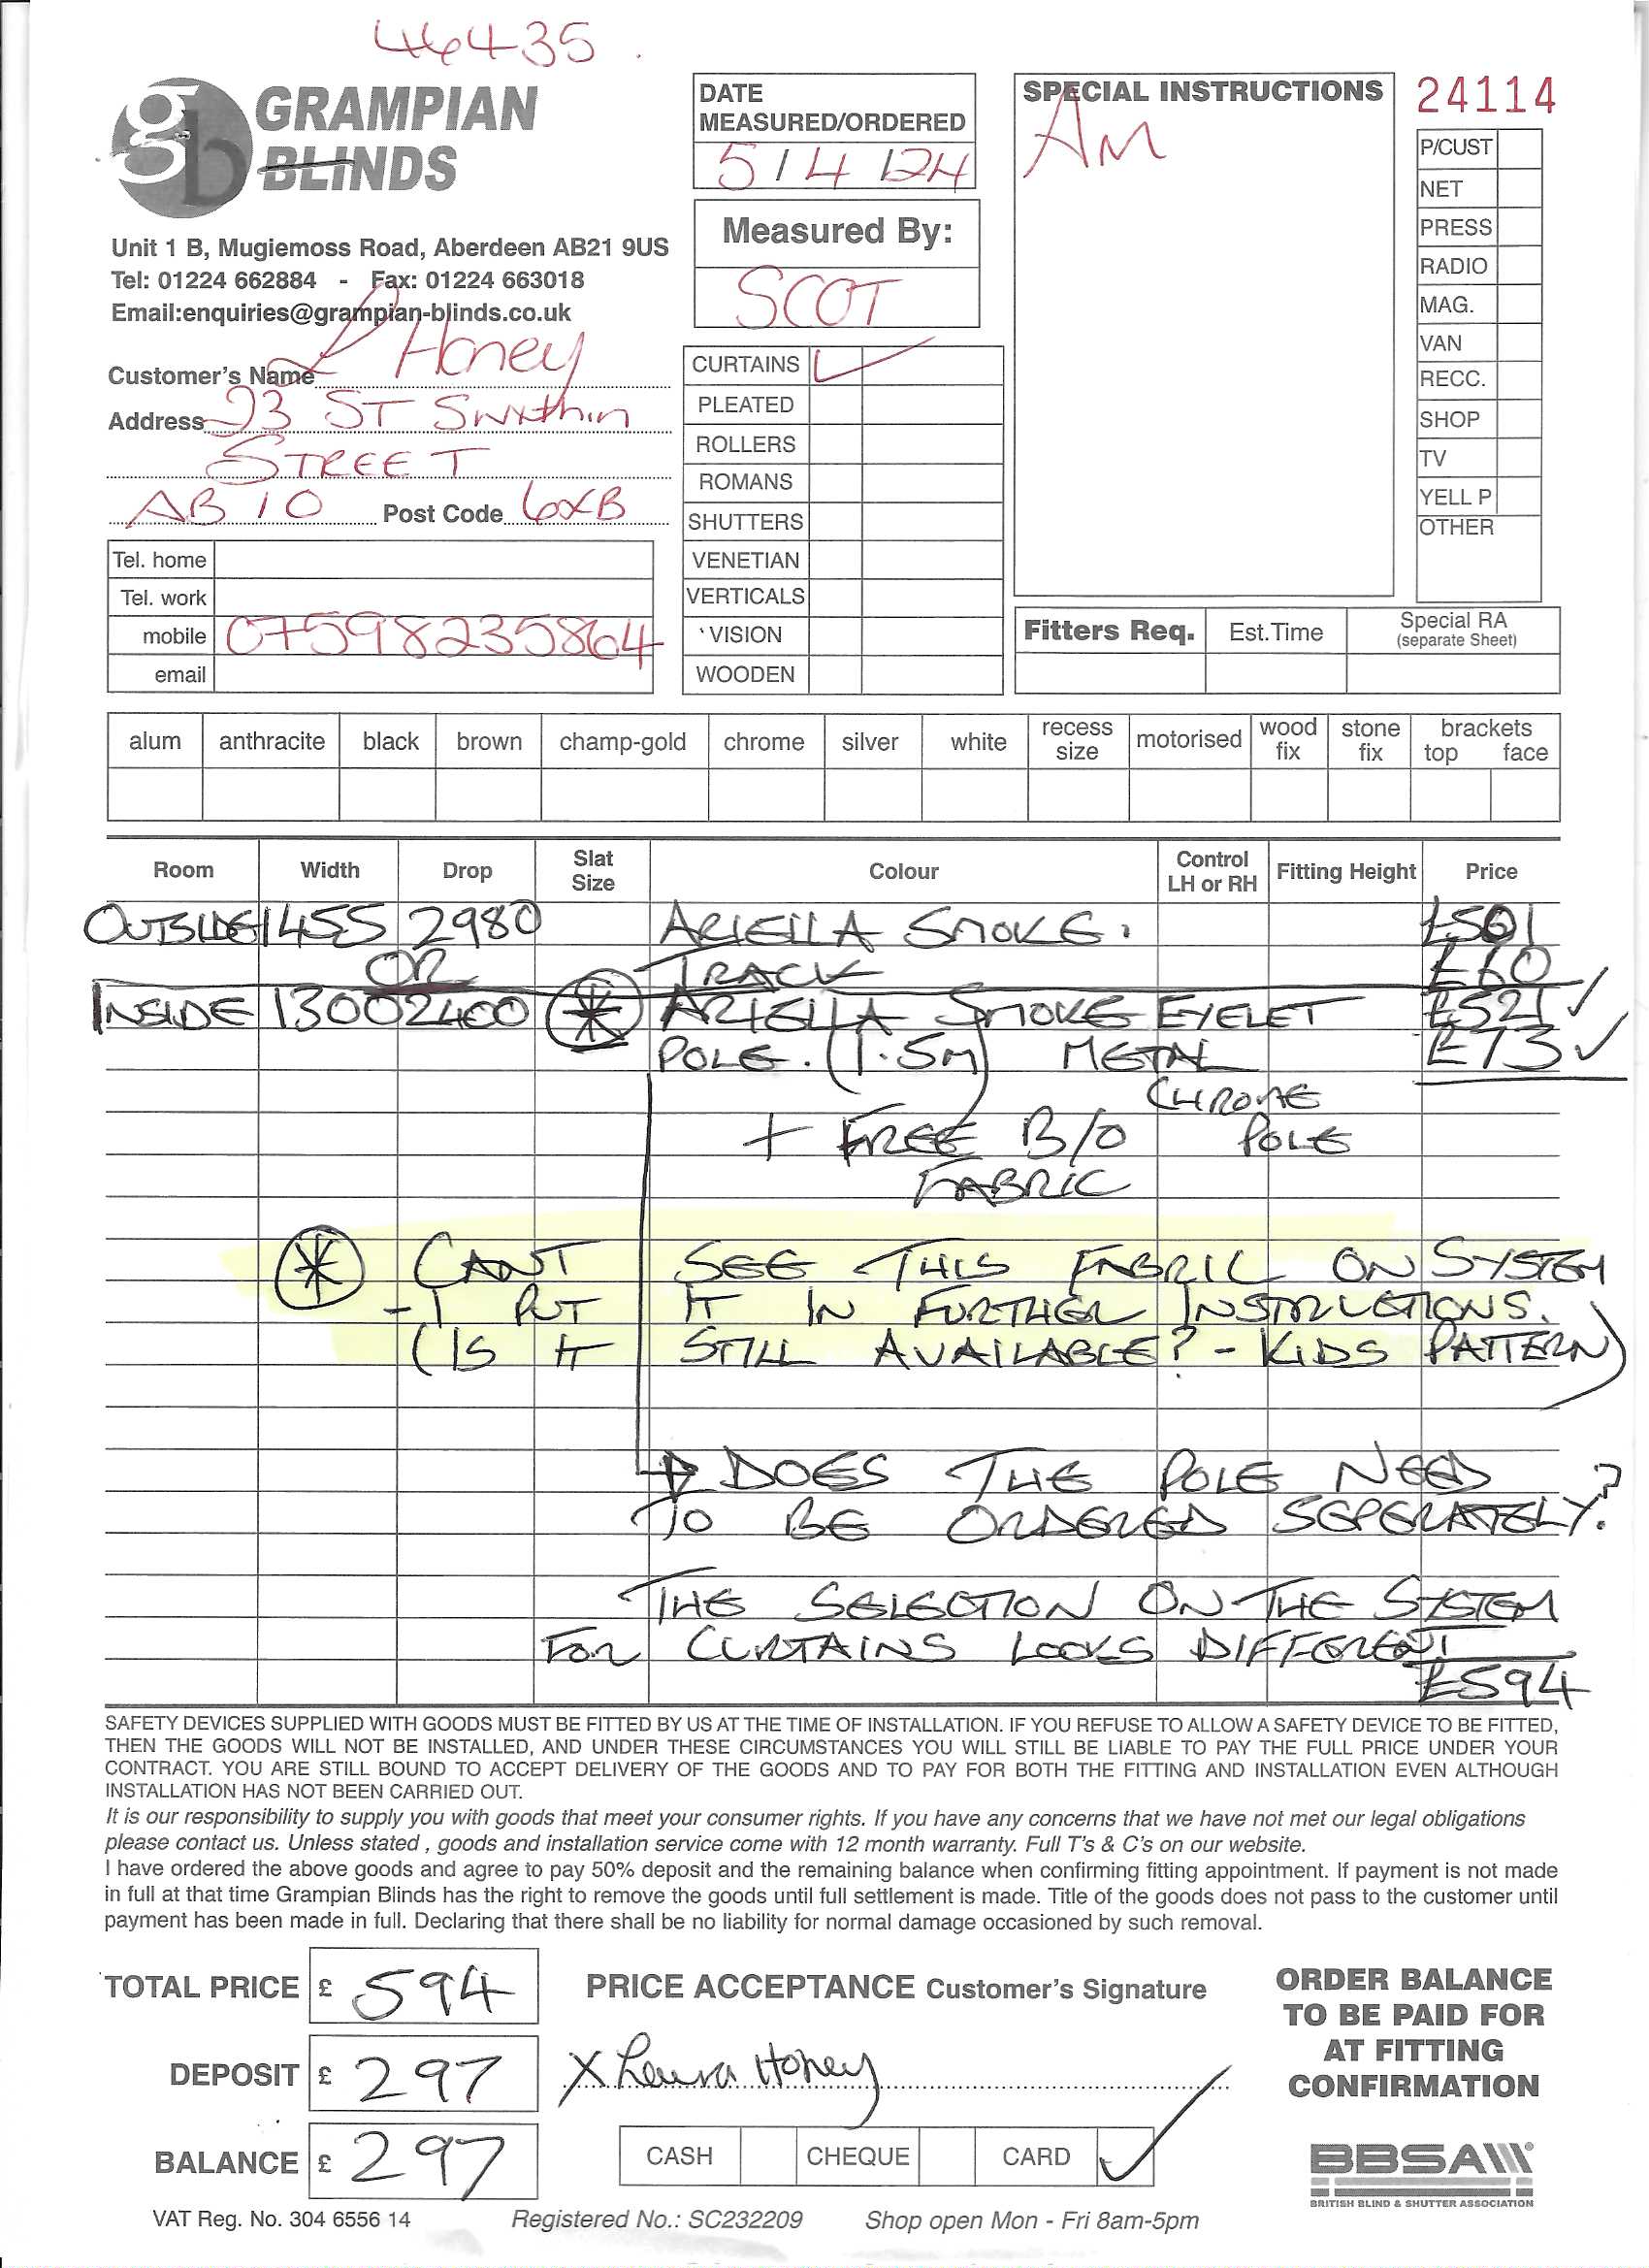 46435.
GRAMPIAN
BLINDS
Unit 1 B, Mugiemoss Road, Aberdeen AB21 9US
Tel: 01224 662884 - Fax: 01224 663018
Email:enquiries@grampian-blinds.co.uk
Customer's Name L Honey
Address 23 ST Swithin
STREET
AB10 Post Code 6XB
Tel. home
Tel. work
mobile 07598235864
email
DATE
MEASURED/ORDERED
5/4/24
Measured By:
SCOT
CURTAINS ✓
PLEATED
ROLLERS
ROMANS
SHUTTERS
VENETIAN
VERTICALS
VISION
WOODEN
SPECIAL INSTRUCTIONS
AM
24114
P/CUST
NET
PRESS
RADIO
MAG.
VAN
RECC.
SHOP
TV
YELL P
OTHER
Fitters Req. Est.Time Special RA
(separate Sheet)
alum anthracite black brown champ-gold chrome silver white recess size motorised wood fix stone fix brackets top face
Room Width Drop Slat Size Colour Control LH or RH Fitting Height Price
OUTSIDE 1455 2980 ARIELLA SMOKE. £501
OR TRACK £60
INSIDE 1300 2400 * ARIELLA SMOKE EYELET £521 ✓
POLE. (1.5m) METAL £73 ✓
CHROME
+ FREE B/O POLE
FABRIC
* CANT SEE THIS FABRIC ON SYSTEM
- I PUT IT IN FURTHER INSTRUCTIONS.
(IS IT STILL AVAILABLE? - KIDS PATTERN)
DOES THE POLE NEED
TO BE ORDERED SEPERATELY?
THE SELECTION ON THE SYSTEM
FOR CURTAINS LOOKS DIFFERENT
£594
SAFETY DEVICES SUPPLIED WITH GOODS MUST BE FITTED BY US AT THE TIME OF INSTALLATION. IF YOU REFUSE TO ALLOW A SAFETY DEVICE TO BE FITTED,
THEN THE GOODS WILL NOT BE INSTALLED, AND UNDER THESE CIRCUMSTANCES YOU WILL STILL BE LIABLE TO PAY THE FULL PRICE UNDER YOUR
CONTRACT. YOU ARE STILL BOUND TO ACCEPT DELIVERY OF THE GOODS AND TO PAY FOR BOTH THE FITTING AND INSTALLATION EVEN ALTHOUGH
INSTALLATION HAS NOT BEEN CARRIED OUT.
It is our responsibility to supply you with goods that meet your consumer rights. If you have any concerns that we have not met our legal obligations
please contact us. Unless stated , goods and installation service come with 12 month warranty. Full T's & C's on our website.
I have ordered the above goods and agree to pay 50% deposit and the remaining balance when confirming fitting appointment. If payment is not made
in full at that time Grampian Blinds has the right to remove the goods until full settlement is made. Title of the goods does not pass to the customer until
payment has been made in full. Declaring that there shall be no liability for normal damage occasioned by such removal.
TOTAL PRICE £ 594
DEPOSIT £ 297
BALANCE £ 297
PRICE ACCEPTANCE Customer's Signature
X Laura Honey
CASH CHEQUE CARD ✓
ORDER BALANCE
TO BE PAID FOR
AT FITTING
CONFIRMATION
BBSA
BRITISH BLIND & SHUTTER ASSOCIATION
VAT Reg. No. 304 6556 14 Registered No.: SC232209 Shop open Mon - Fri 8am-5pm